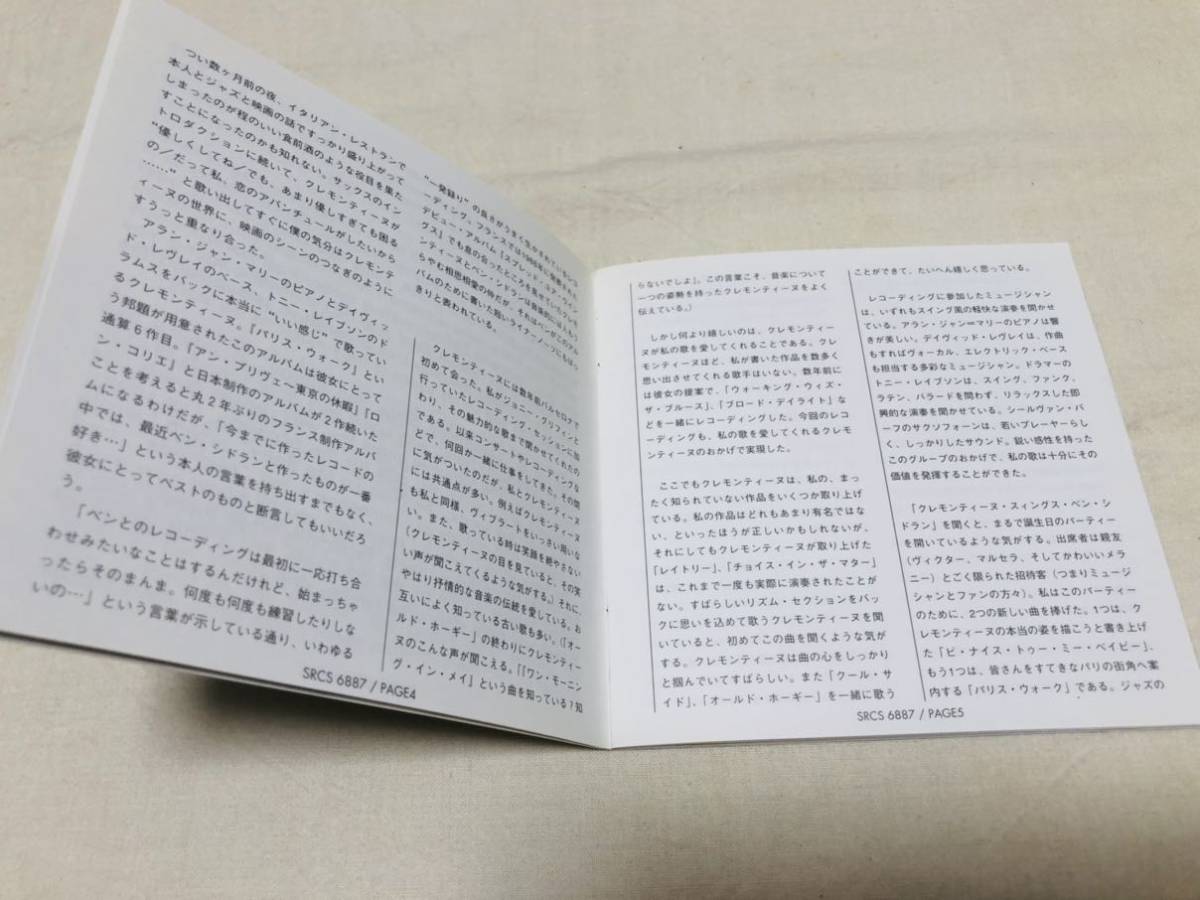 つい数ヶ月前の夜、イタリアン・レストランで
本人とジャズと映画の話ですっかり盛り上がって
しまったのが程のいい食前酒のような役目を果た
すことになったのかも知れない。サックスのイン
トロダクションに続いて、クレモンティーヌが
“優しくしてね/でも、あまり優しすぎても困る
の/だって私、恋のアバンチュールがしたいから
……”と歌い出してすぐに僕の気分はクレモンテ
ィーヌの世界に、映画のシーンのつなぎのように
すうっと重なり合った。
アラン・ジャン・マリーのピアノとデイヴィッ
ド・レヴレイのベース、トニー・レイブソンのド
ラムスをバックに本当に“いい感じ”で歌ってい
るクレモンティーヌ。『パリス・ウォーク』とい
う邦題が用意されたこのアルバムは彼女にとって
通算6作目。『アン・プリヴェ〜東京の休暇』『ロ
ン・コリエ』と日本制作のアルバムが2作続いた
ことを考えると丸2年ぶりのフランス制作アルバ
ムになるわけだが、「今までに作ったレコードの
中では、最近ベン・シドランと作ったものが一番
好き…」という本人の言葉を持ち出すまでもなく、
彼女にとってベストのものと断言してもいいだろ
う。
「ベンとのレコーディングは最初に一応打ち合
わせみたいなことはするんだけれど、始まっちゃ
ったらそのまんま。何度も何度も練習したりしな
いの…」という言葉が示している通り、いわゆる
“一発録り”の良さがうまく生かされているレコ
ーディング。フランスでは1988年に発表された
デビュー・アルバム『スプレッド・ユア・ウィン
グス』でも息の合ったところを見せていたクレモ
ンティーヌとベン・シドランは音楽的にはどうや
らやむ相思相愛の仲だが、それはベンがこのアル
バムのために書いた短いライナー・ノーツにもはっ
きりと表われている。
クレモンティーヌには数年前パルセロナで
初めて会った。私がジョニー・グリフィンと
行っていたレコーディング・セッションに加
わり、その魅力的な歌まで聞かせてくれたの
である。以来コンサートやレコーディングな
どで、何回か一緒に仕事をしてきた。その間
に気がついたのだが、私とクレモンティーヌ
には共通点が多い。例えばクレモンティーヌ
も私と同様、ヴィブラートをいっさい用いな
い。また、歌っている時は笑顔を絶やさない
（クレモンティーヌの目を見ていると、その笑
い声が聞こえてくるような気がする。）それに、
やはり抒情的な音楽の伝統を愛している。お
互いによく知っている古い歌も多い。（「オー
ルド・ホーギー」の終わりにクレモンティー
ヌのこんな声が聞こえる。「『ワン・モーニン
グ・イン・メイ』という曲を知っている？知
SRCS 6887 / PAGE4
らないでしょ」。この言葉こそ、音楽について
一つの姿勢を持ったクレモンティーヌをよく
伝えている。）
しかし何より嬉しいのは、クレモンティー
ヌが私の歌を愛してくれることである。クレ
モンティーヌほど、私が書いた作品を数多く
思い出させてくれる歌手はいない。数年前に
は彼女の提案で、「ウォーキング・ウィズ・
ザ・ブルース」、「ブロード・デイライト」な
どを一緒にレコーディングした。今回のレコ
ーディングも、私の歌を愛してくれるクレモ
ンティーヌのおかげで実現した。
ここでもクレモンティーヌは、私の、まっ
たく知られていない作品をいくつか取り上げ
ている。私の作品はどれもあまり有名ではな
い、といったほうが正しいかもしれないが、
それにしてもクレモンティーヌが取り上げた
「レイトリー」、「チョイス・イン・ザ・マター」
は、これまで一度も実際に演奏されたことが
ない。すばらしいリズム・セクションをバッ
クに思いを込めて歌うクレモンティーヌを聞
いていると、初めてこの曲を聞くような気が
する。クレモンティーヌは曲の心をしっかり
と掴んでいてすばらしい。また「クール・サ
イド」、「オールド・ホーギー」を一緒に歌う
ことができて、たいへん嬉しく思っている。
レコーディングに参加したミュージシャン
は、いずれもスイング風の軽快な演奏を聞かせ
ている。アラン・ジャンーマリーのピアノは響
きが美しい。デイヴィッド・レヴレイは、作曲
もすればヴォーカル、エレクトリック・ベース
も担当する多彩なミュージシャン。ドラマーの
トニー・レイブソンは、スイング、ファンク、
ラテン、バラードを問わず、リラックスした即
興的な演奏を聞かせている。シールヴァン・バ
ーフのサクソフォーンは、若いプレーヤーらし
く、しっかりしたサウンド。鋭い感性を持った
このグループのおかげで、私の歌は十分にその
価値を発揮することができた。
『クレモンティーヌ・スィングス・ベン・シ
ドラン』を聞くと、まるで誕生日のパーティー
を開いているような気がする。出席者は親友
（ヴィクター、マルセラ、そしてかわいいメラ
ニー）とごく限られた招待客（つまりミュージ
シャンとファンの方々）。私はこのパーティー
のために、2つの新しい曲を捧げた。1つは、ク
レモンティーヌの本当の姿を描こうと書き上げ
た「ビ・ナイス・トゥー・ミー・ベイビー」、
もう1つは、皆さんをすてきなパリの街角へ案
内する「パリス・ウォーク」である。ジャズの
SRCS 6887 / PAGE5